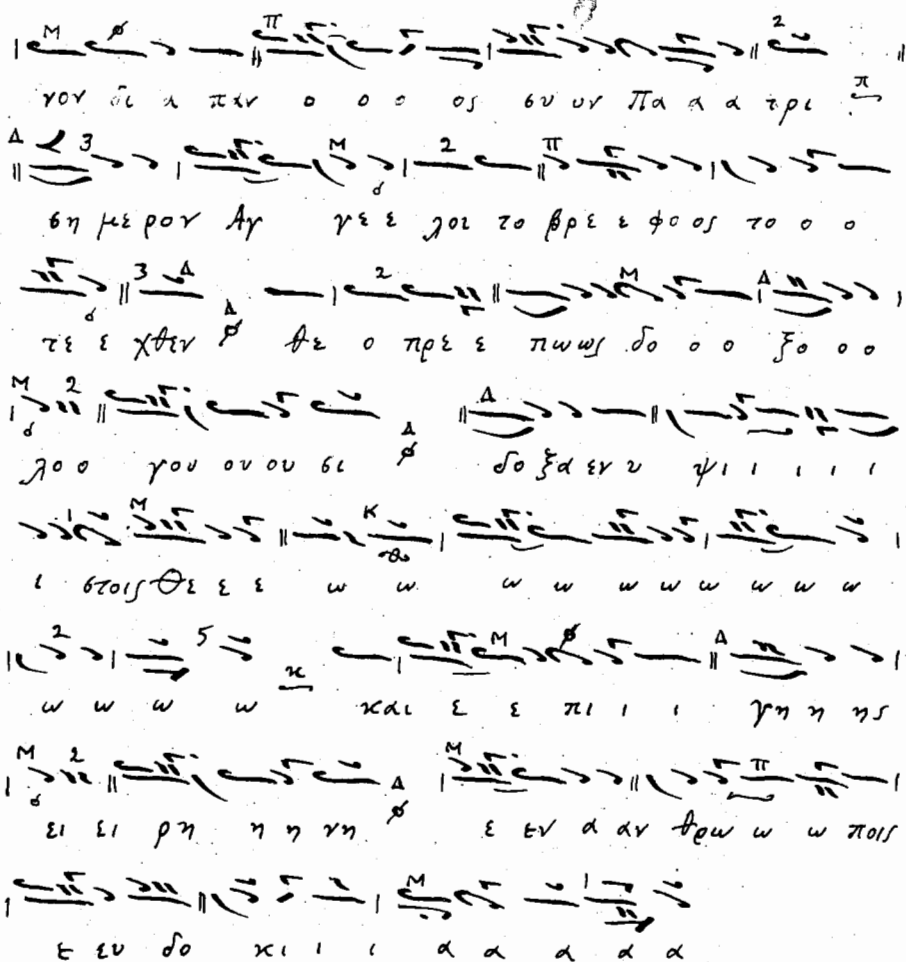 γον δι α παν ο ο ο ος συ υν Πα α α τρι
ση με ρον Αγ γε ε λοι το βρε ε φο ος το ο ο
τε ε χθεν θε ο πρε ε πω ως δο ο ο ξο ο ο
λο ο γου ου ου σι δο ξα εν υ ψι ι ι ι ι
ι στοις Θε ε ε ω ω ω ω ω ω ω ω ω
ω ω ω ω και ε ε πι ι ι γη η ης
ει ει ρη η η νη ε εν α αν θρω ω ω ποις
ε ευ δο κι ι ι α α α α α